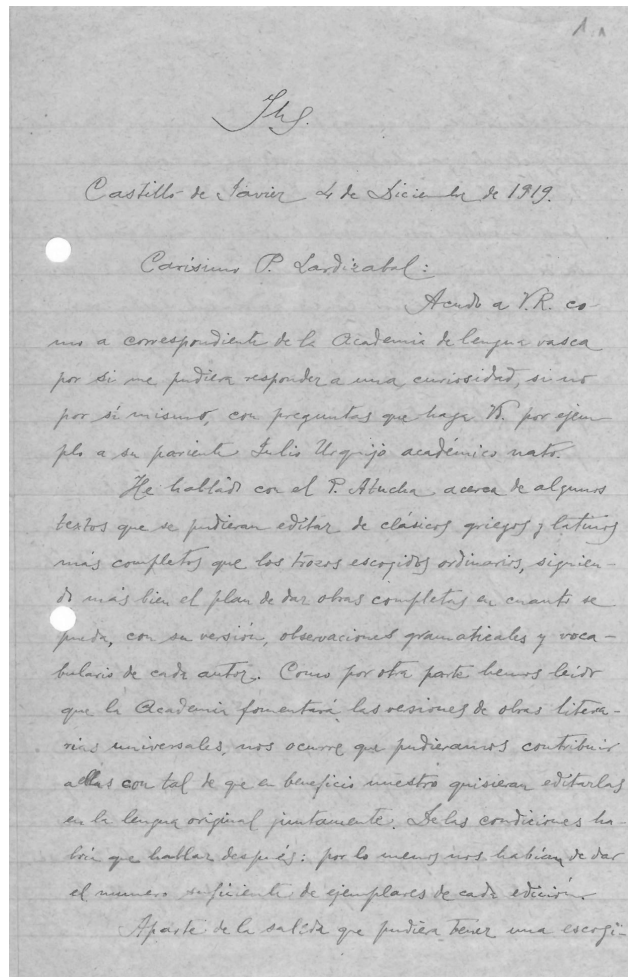 1.
Jhs.
Castillo de Javier 4 de Diciembre de 1919.
Carisimo P. Lardizabal:
Acudo a V.R. co-
mo a correspondiente de la Academia de lengua vasca
por si me pudiera responder a una curiosidad, si no
por sí mismo, con preguntas que haga V. por ejem-
plo a su pariente Julio Urquijo académico nato.
He hablado con el P. Atucha acerca de algunos
textos que se pudieran editar de clásicos griegos y latinos
más completos que los trozos escogidos ordinarios, siguien-
do más bien el plan de dar obras completas en cuanto se
pueda, con su versión, observaciones gramaticales y voca-
bulario de cada autor. Como por otra parte hemos leído
que la Academia fomentará las vesiones de obras litera-
rias universales, nos ocurre que pudieramos contribuir
a ellas con tal de qe en beneficio nuestro quisieran editarlas
en la lengua original juntamente. De las condiciones ha-
bría que hablar después: por lo menos nos habían de dar
el numero suficiente de ejemplares de cada edición.
Aparte de la salida que pudiera tener una escogi-